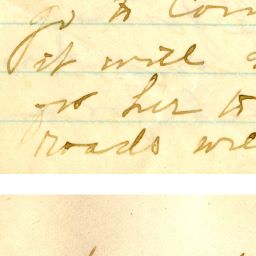 go to com
it will
go her to
roads wil